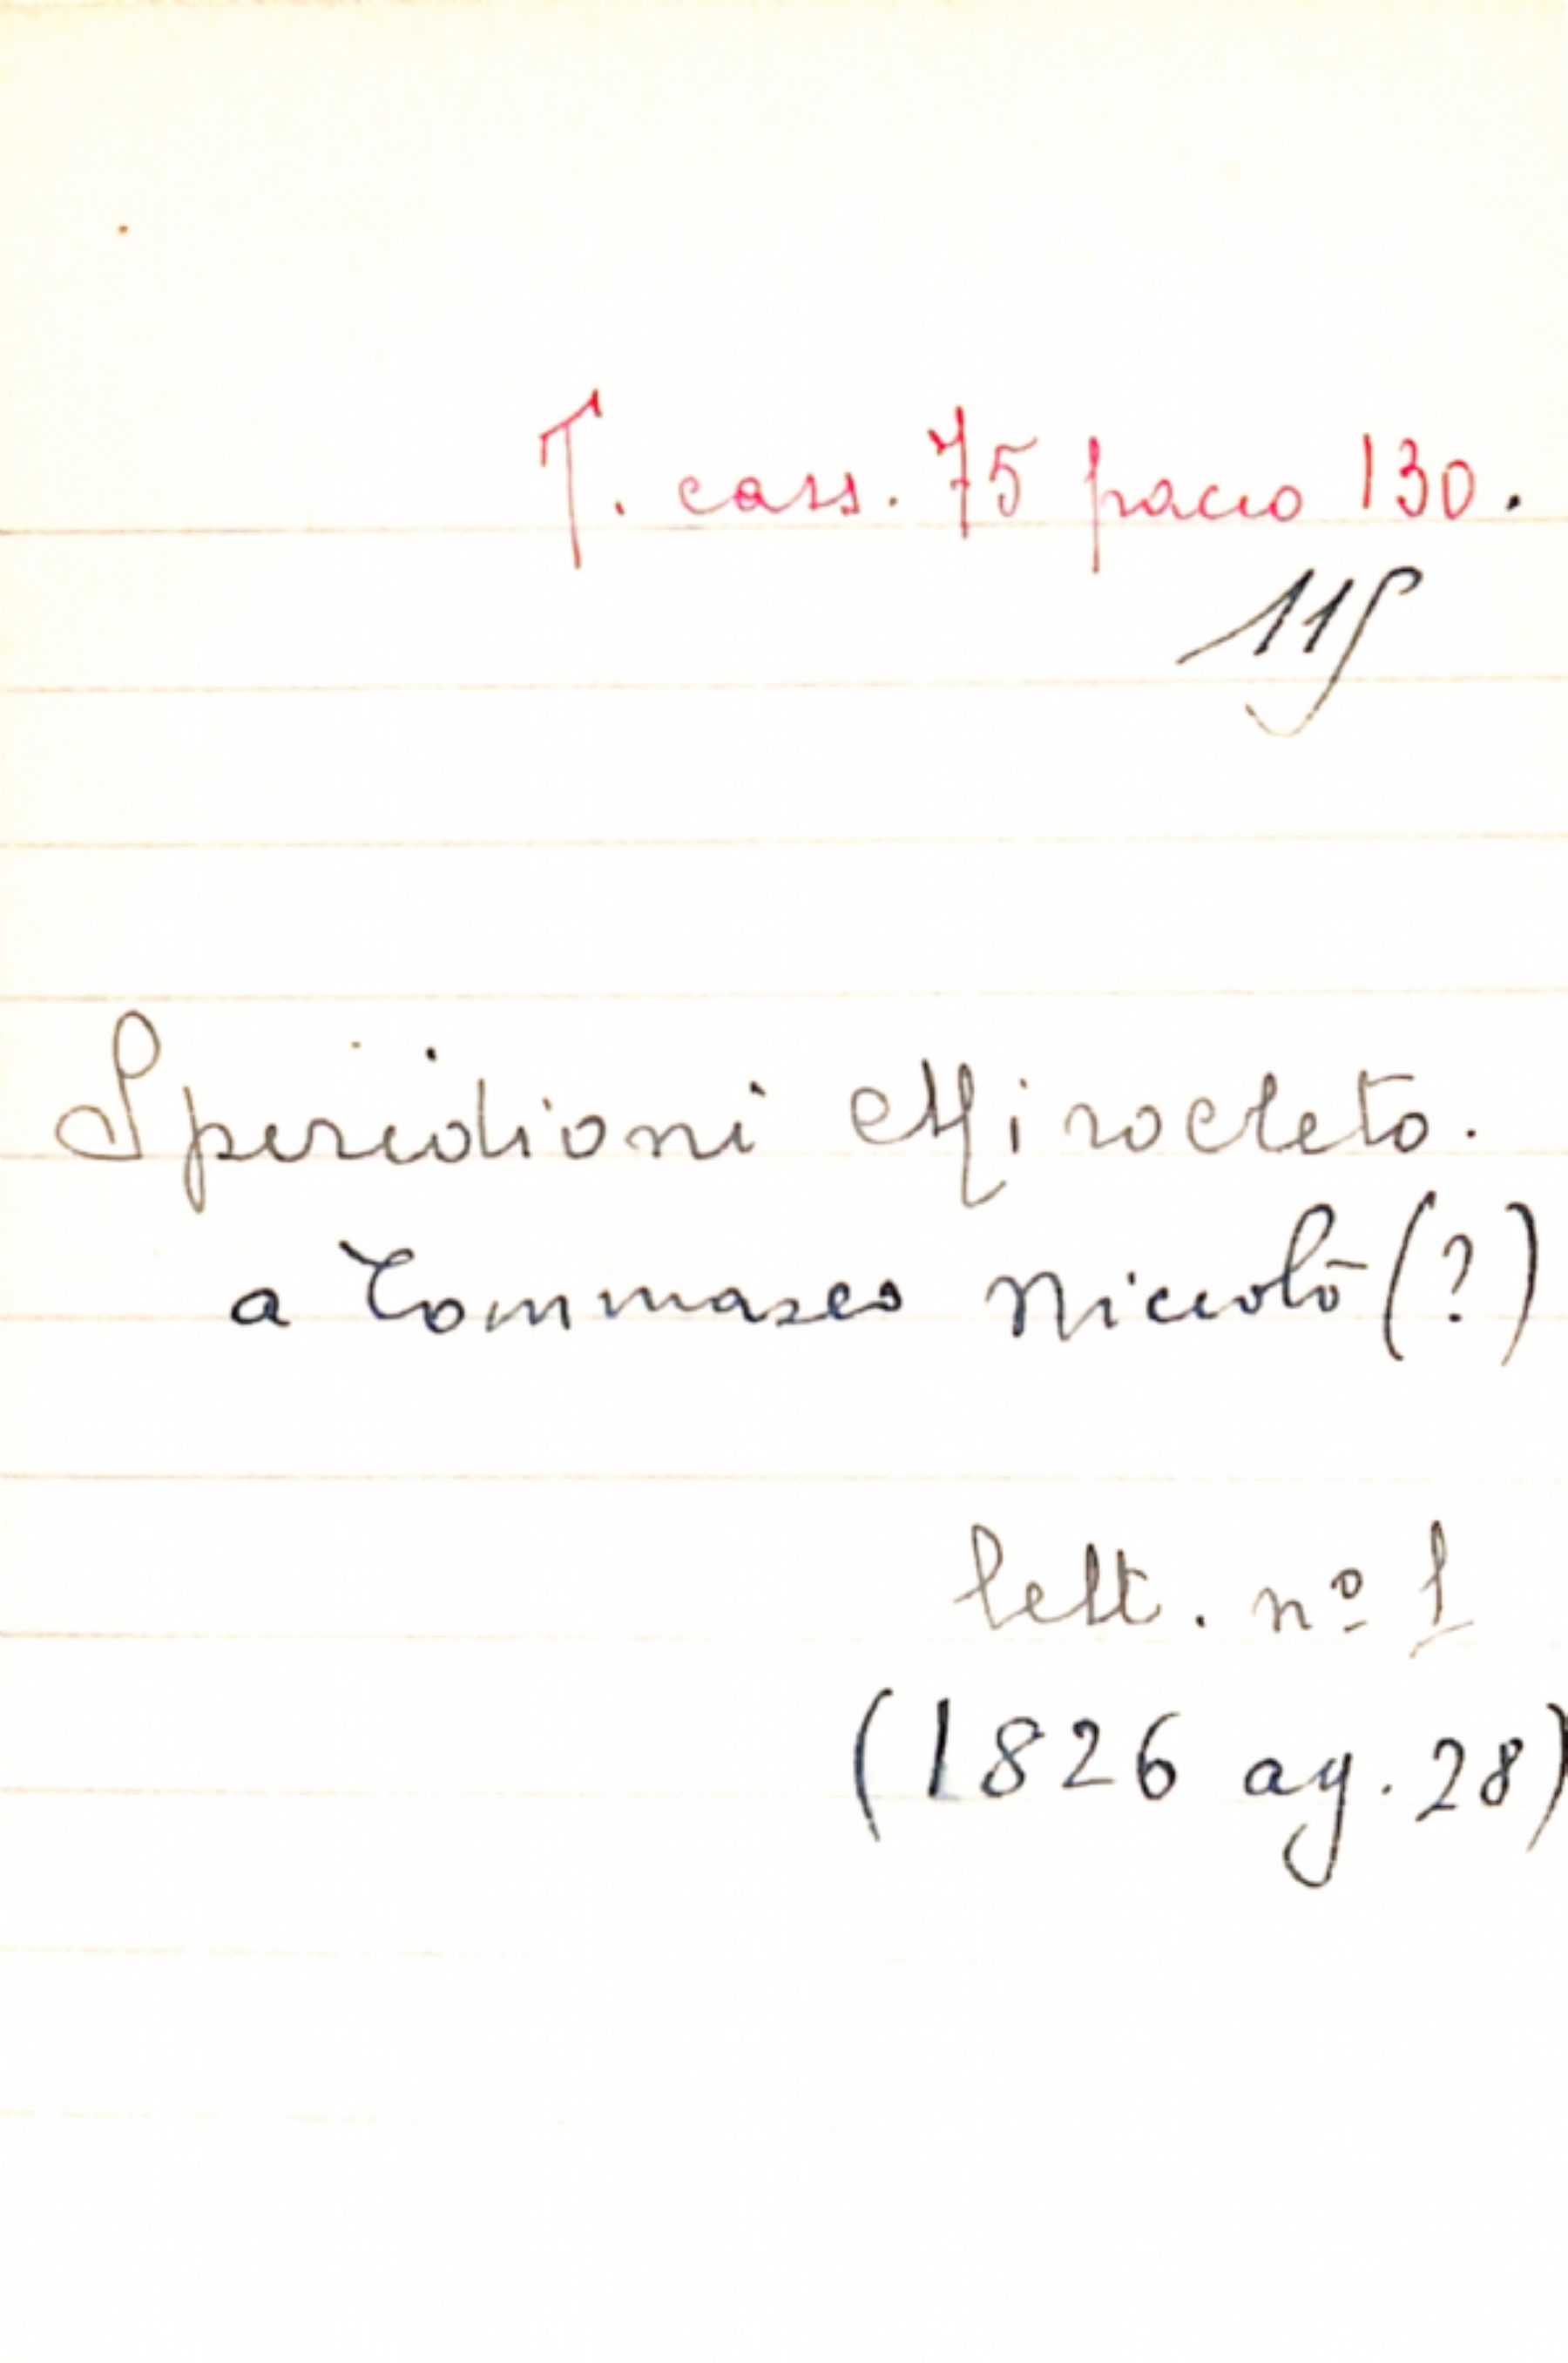 T. cass. 75 pacco 130.
115
Speridioni Mirocleto.
a Tommaseo Niccolò (?)
lett. nº 1
(1826 ag. 28)